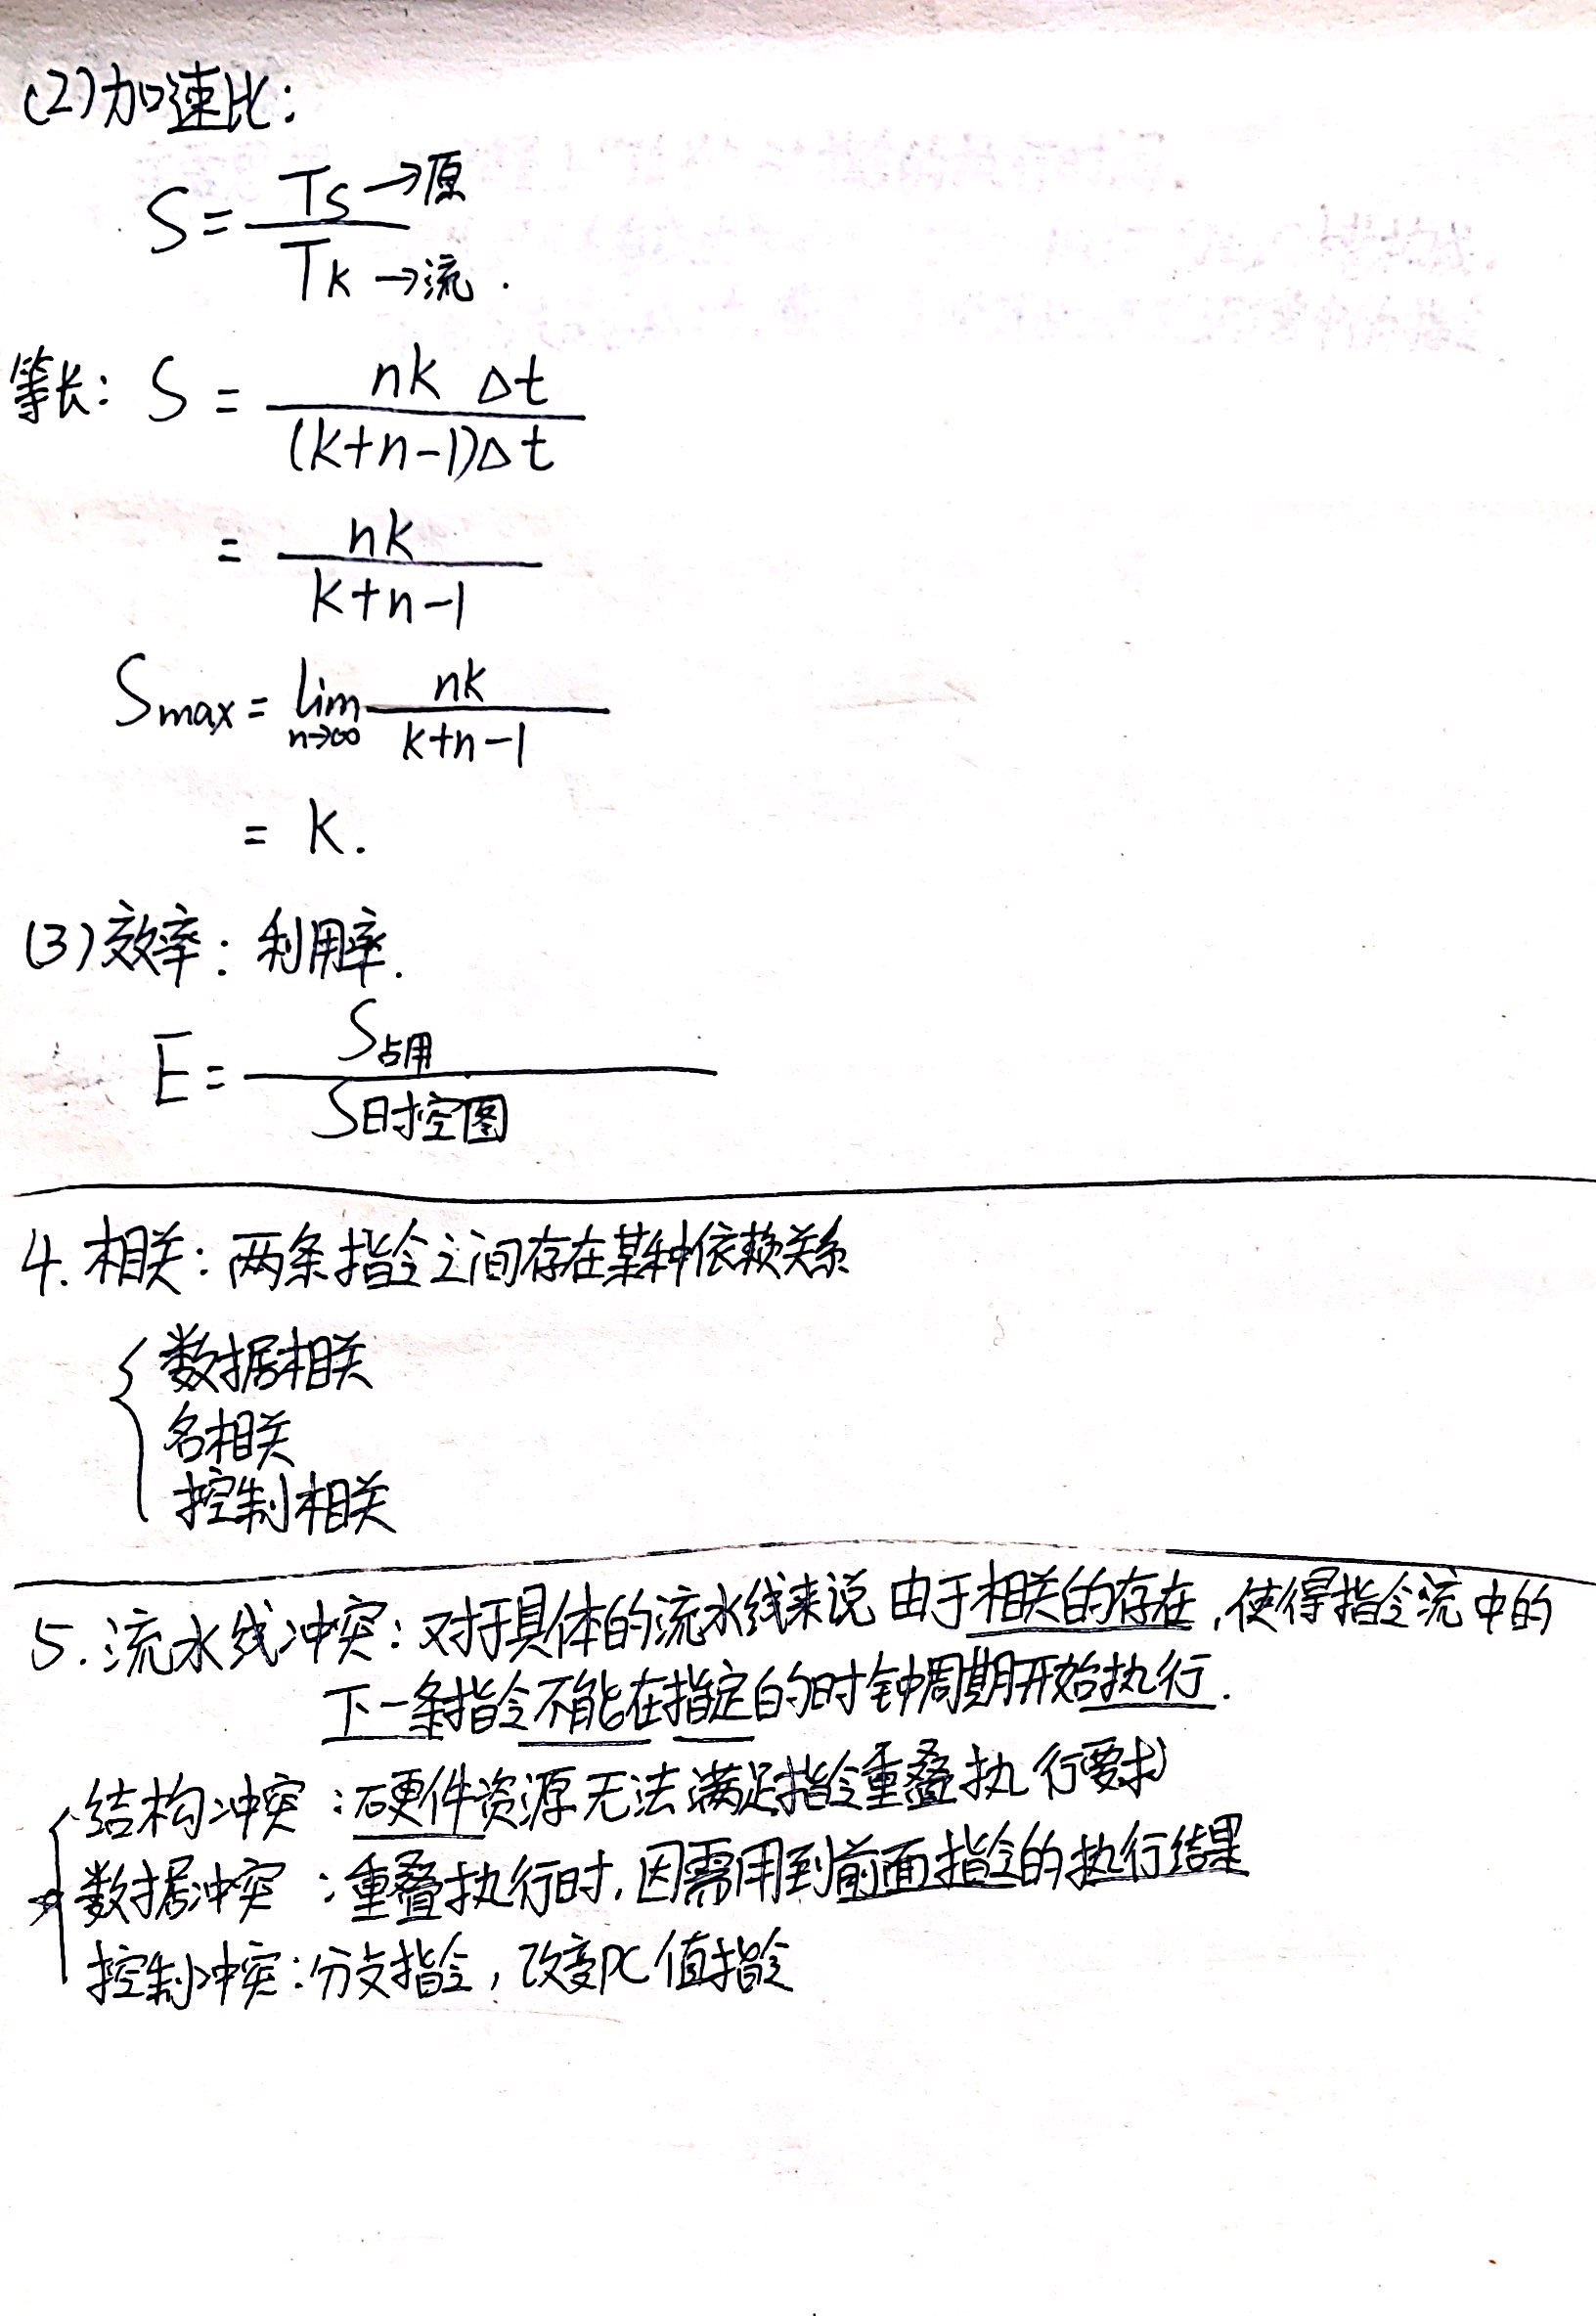 (2)加速比:
S = Ts→原 / Tk→流.
等长: S = nk Δt / (k+n-1)Δt
= nk / k+n-1
Smax = lim n→∞ nk / k+n-1
= k.
(3)效率: 利用率.
E = S占用 / S时空图
4. 相关: 两条指令之间存在某种依赖关系
数据相关
名相关
控制相关
5. 流水线冲突: 对于具体的流水线来说 由于相关的存在, 使得指令流中的
下一条指令不能在指定的时钟周期开始执行.
结构冲突: 硬件资源无法满足指令重叠执行要求
数据冲突: 重叠执行时, 因需用到前面指令的执行结果
控制冲突: 分支指令, 改变PC值指令